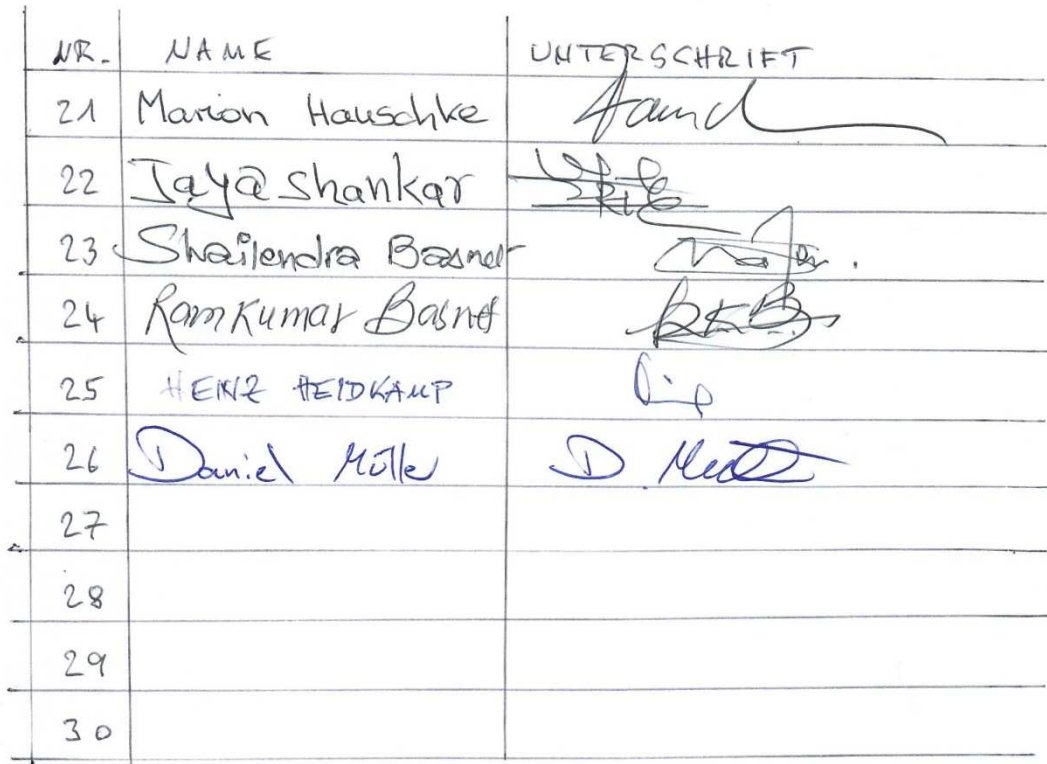 NR. NAME UNTERSCHRIFT
21 Marion Hauschke
22 Jay@ Shankar
23 Shailendra Basnet
24 Ram Kumar Basnet RKB
25 HEINZ HEIDKAMP
26 Daniel Müller D. Müller
27
28
29
30